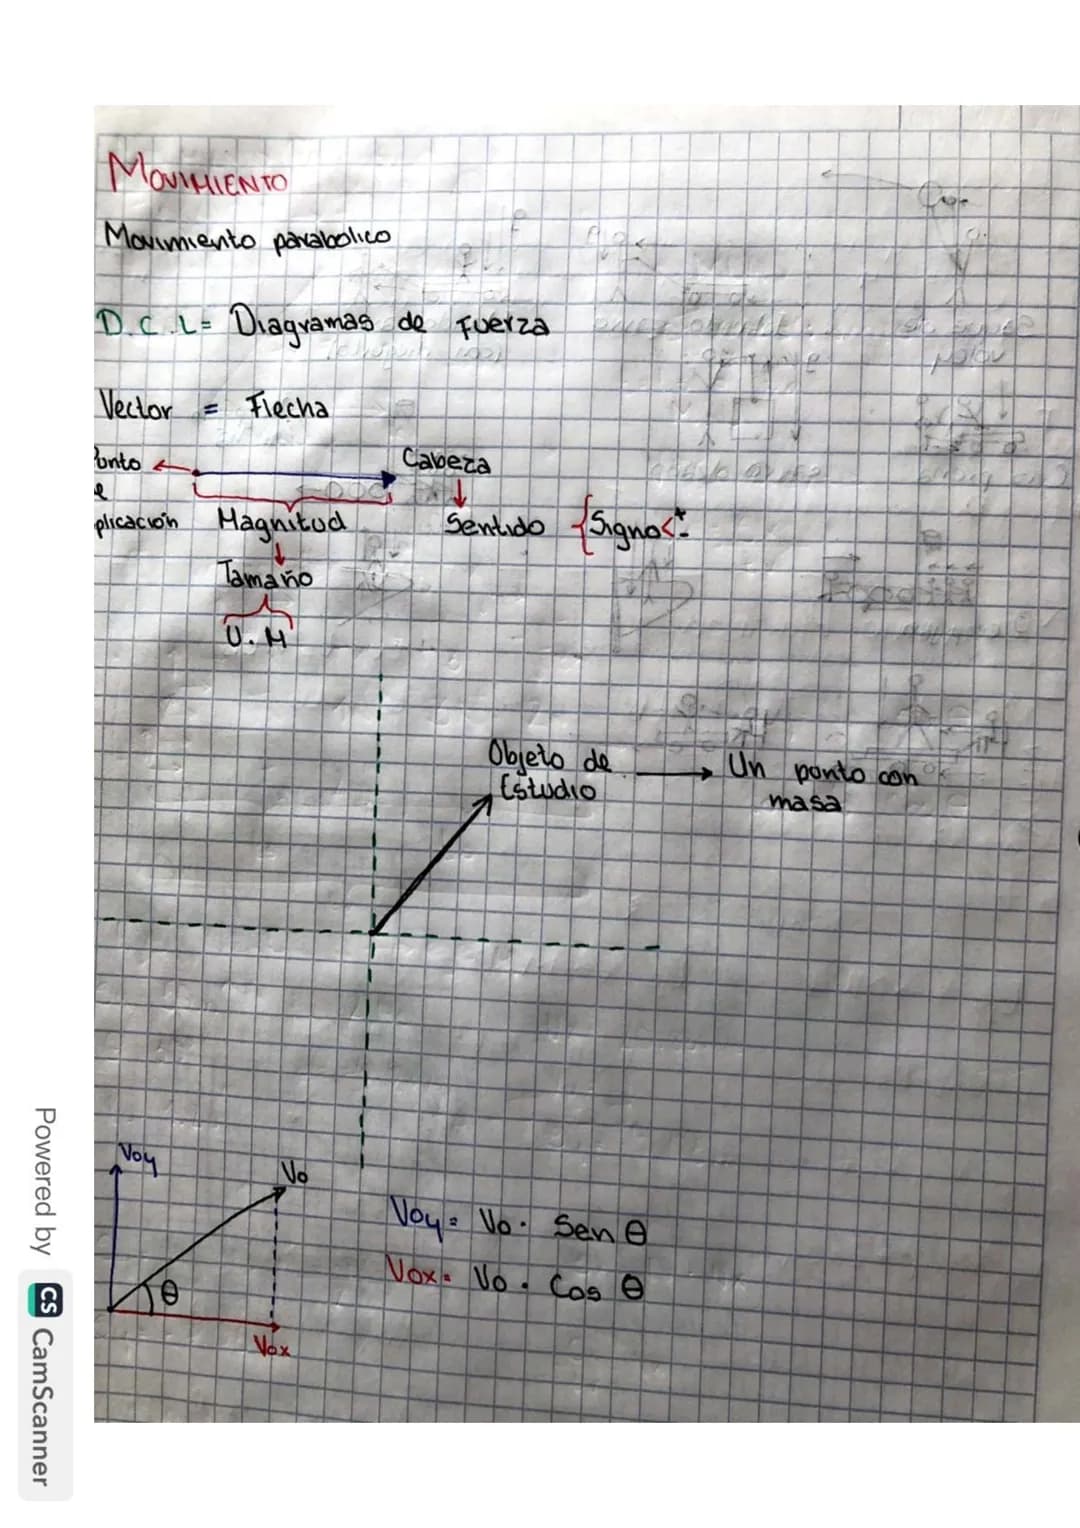 MOVIMIENTO
Movimiento parabolico
D.C.L= Diagramas de Fuerza
Vector = Flecha
Punto
e
plicación
Cabeza
Magnitud
Sentido {Signo< + -
Tamaño
U.M
Objeto de
Estudio
Un punto con
masa
Voy
Vo
θ
Vox
Voy= Vo. Sen θ
Vox= Vo. Cos θ
Powered by CS CamScanner